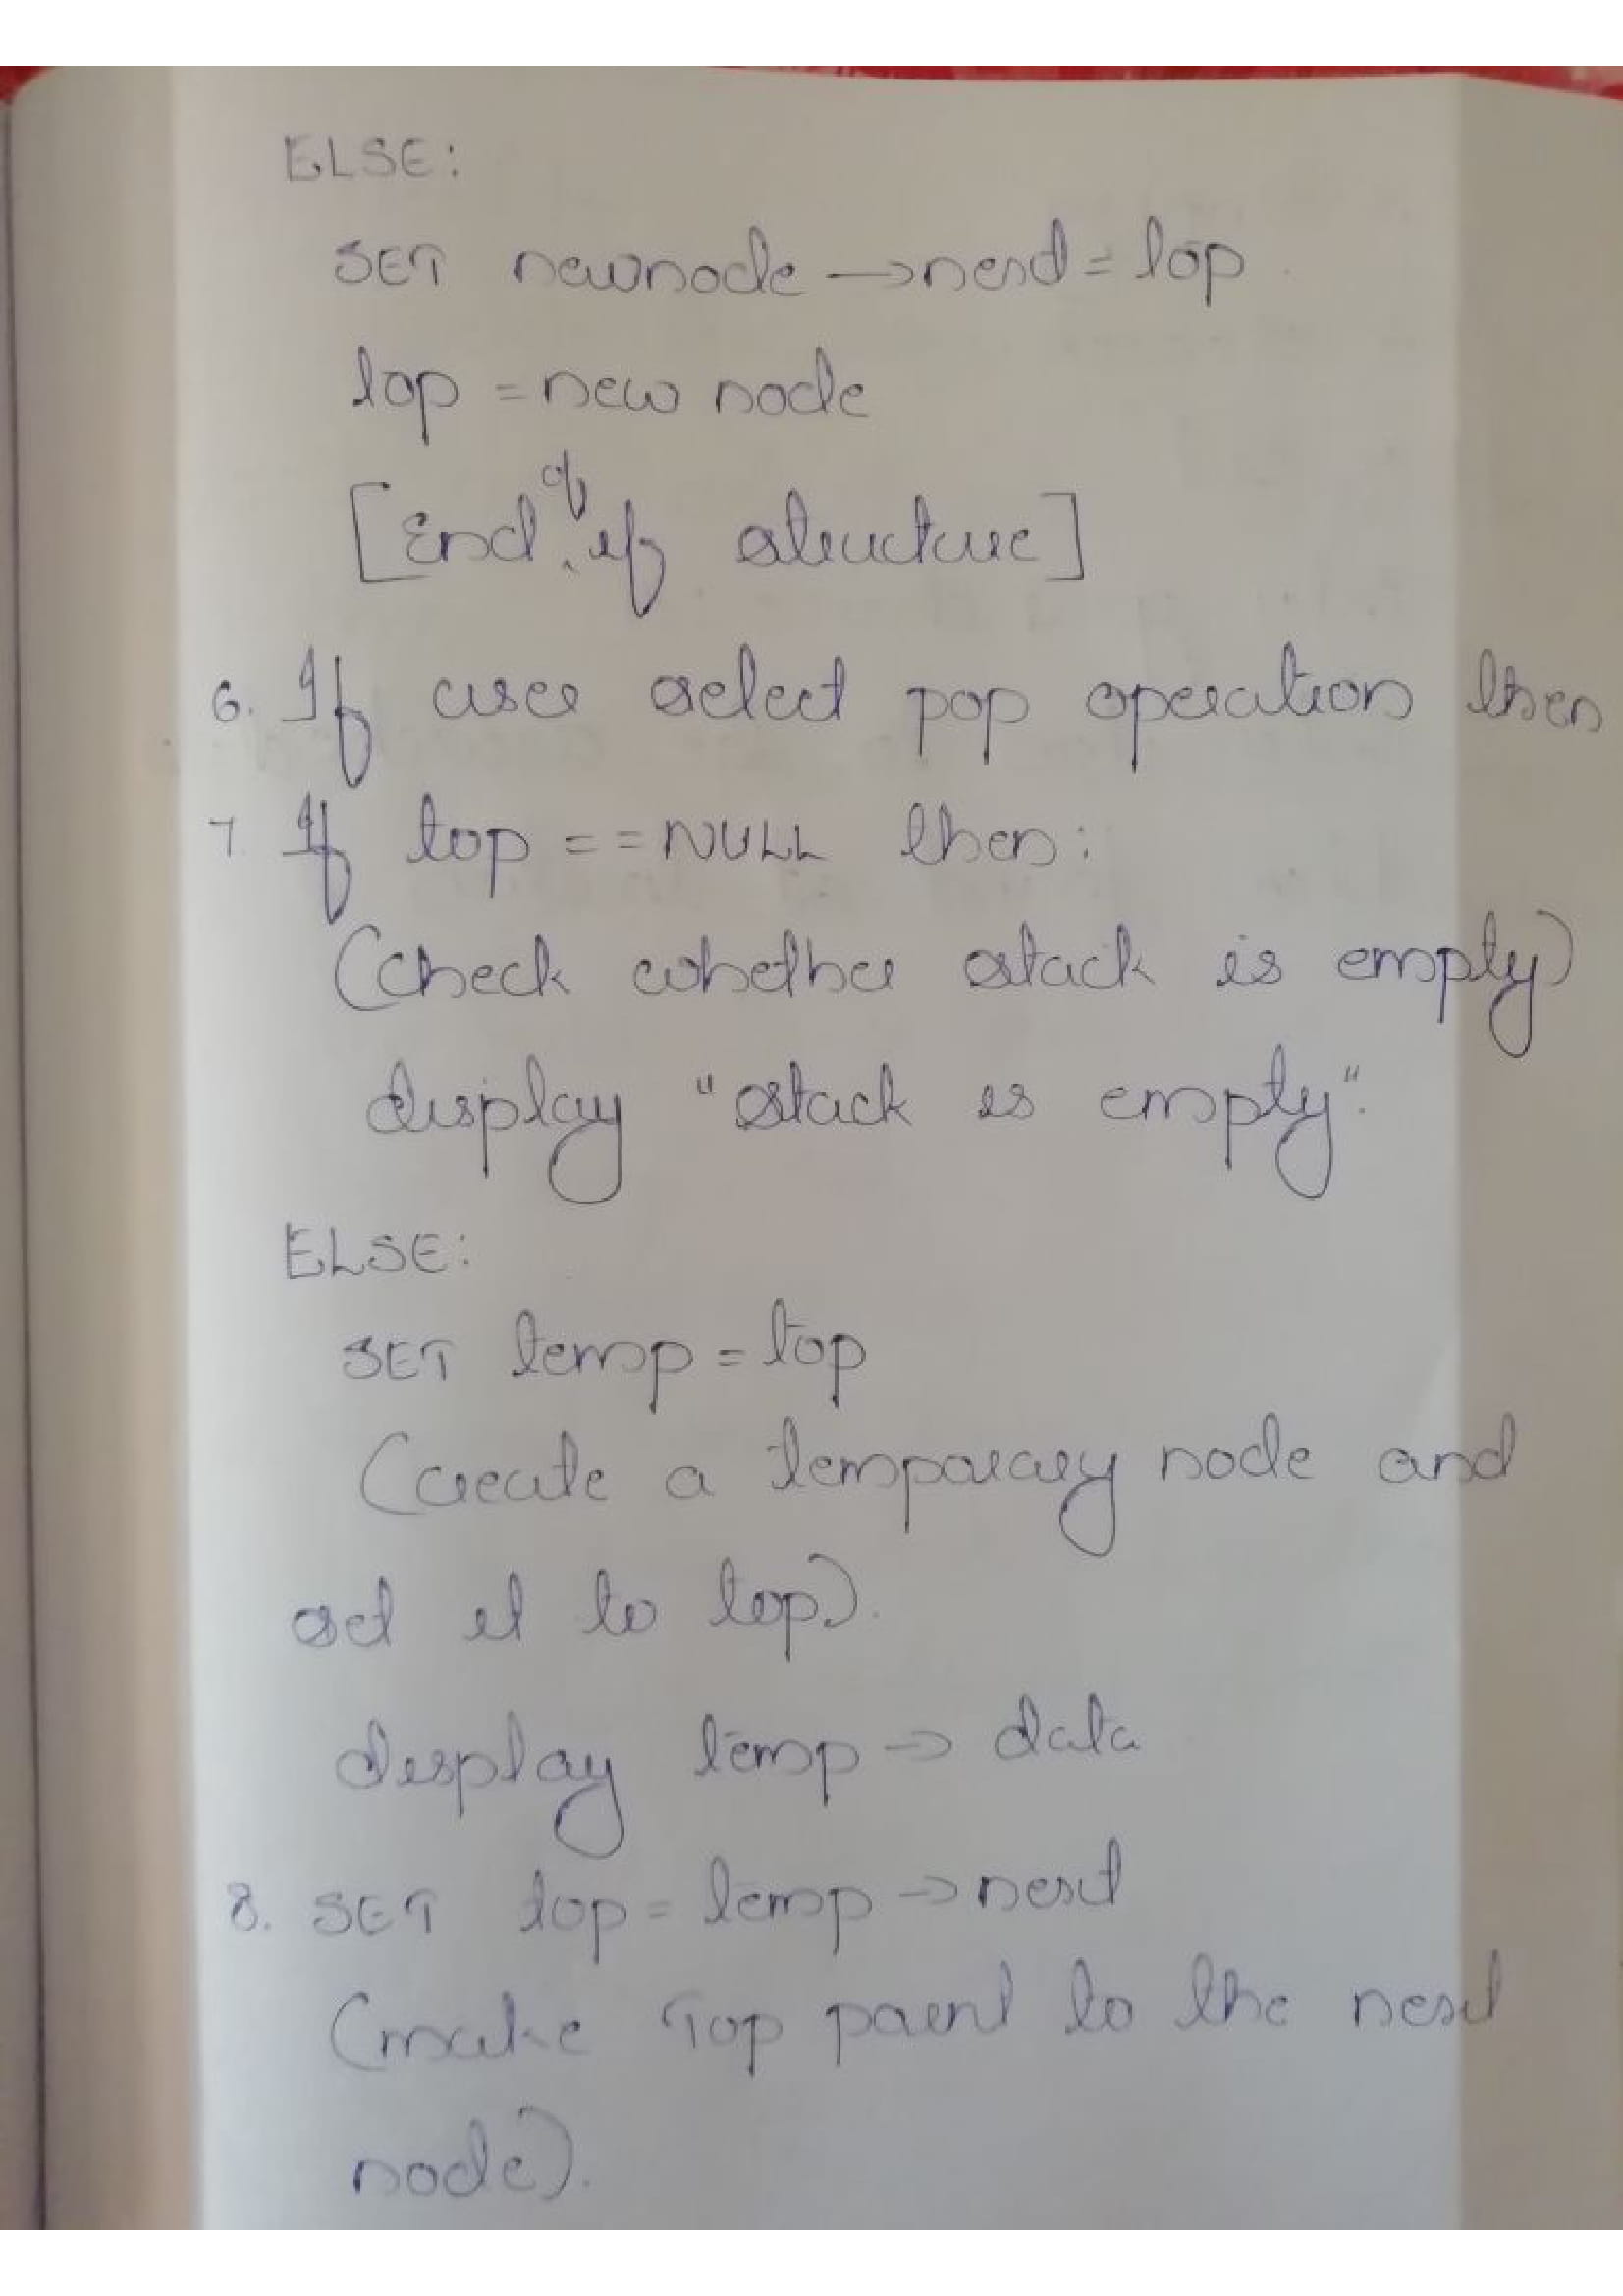 ELSE:
SET newnode → next = top
top = new node
[End of if structure]
6. If user select pop operation then
7. If top == NULL then:
(check whether stack is empty)
display "stack is empty".
ELSE:
SET temp = top
(create a temporary node and
set it to top).
display temp → data
8. SET top = temp → next
(make Top point to the next
node).